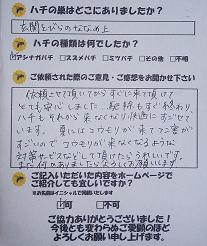 ハチの巣はどこにありましたか？
玄関とびらのななめ上
ハチの種類は何でしたか？
アシナガバチ ・スズメバチ ・ミツバチ ・その他 ・不明
ご依頼された際のご意見・ご感想をお聞かせ下さい
依頼させて頂いてからすぐに来て頂けて
とても安心しました。駆除もすぐ終わり
ハチもそれから来なくなり快適にすごせて
います。夏にはコウモリが来てフン害が
すごいので コウモリが来なくなるような
対策などして頂けたらうれしいです。
また何かありましたらよろしくお願いします
ご記入いただいた内容をホームページで
ご紹介しても宜しいですか？
※お名前はイニシャルで掲載いたします
可 ・不可
ご協力ありがとうございました！
今後とも変わらぬご愛顧のほど
よろしくお願い申し上げます。